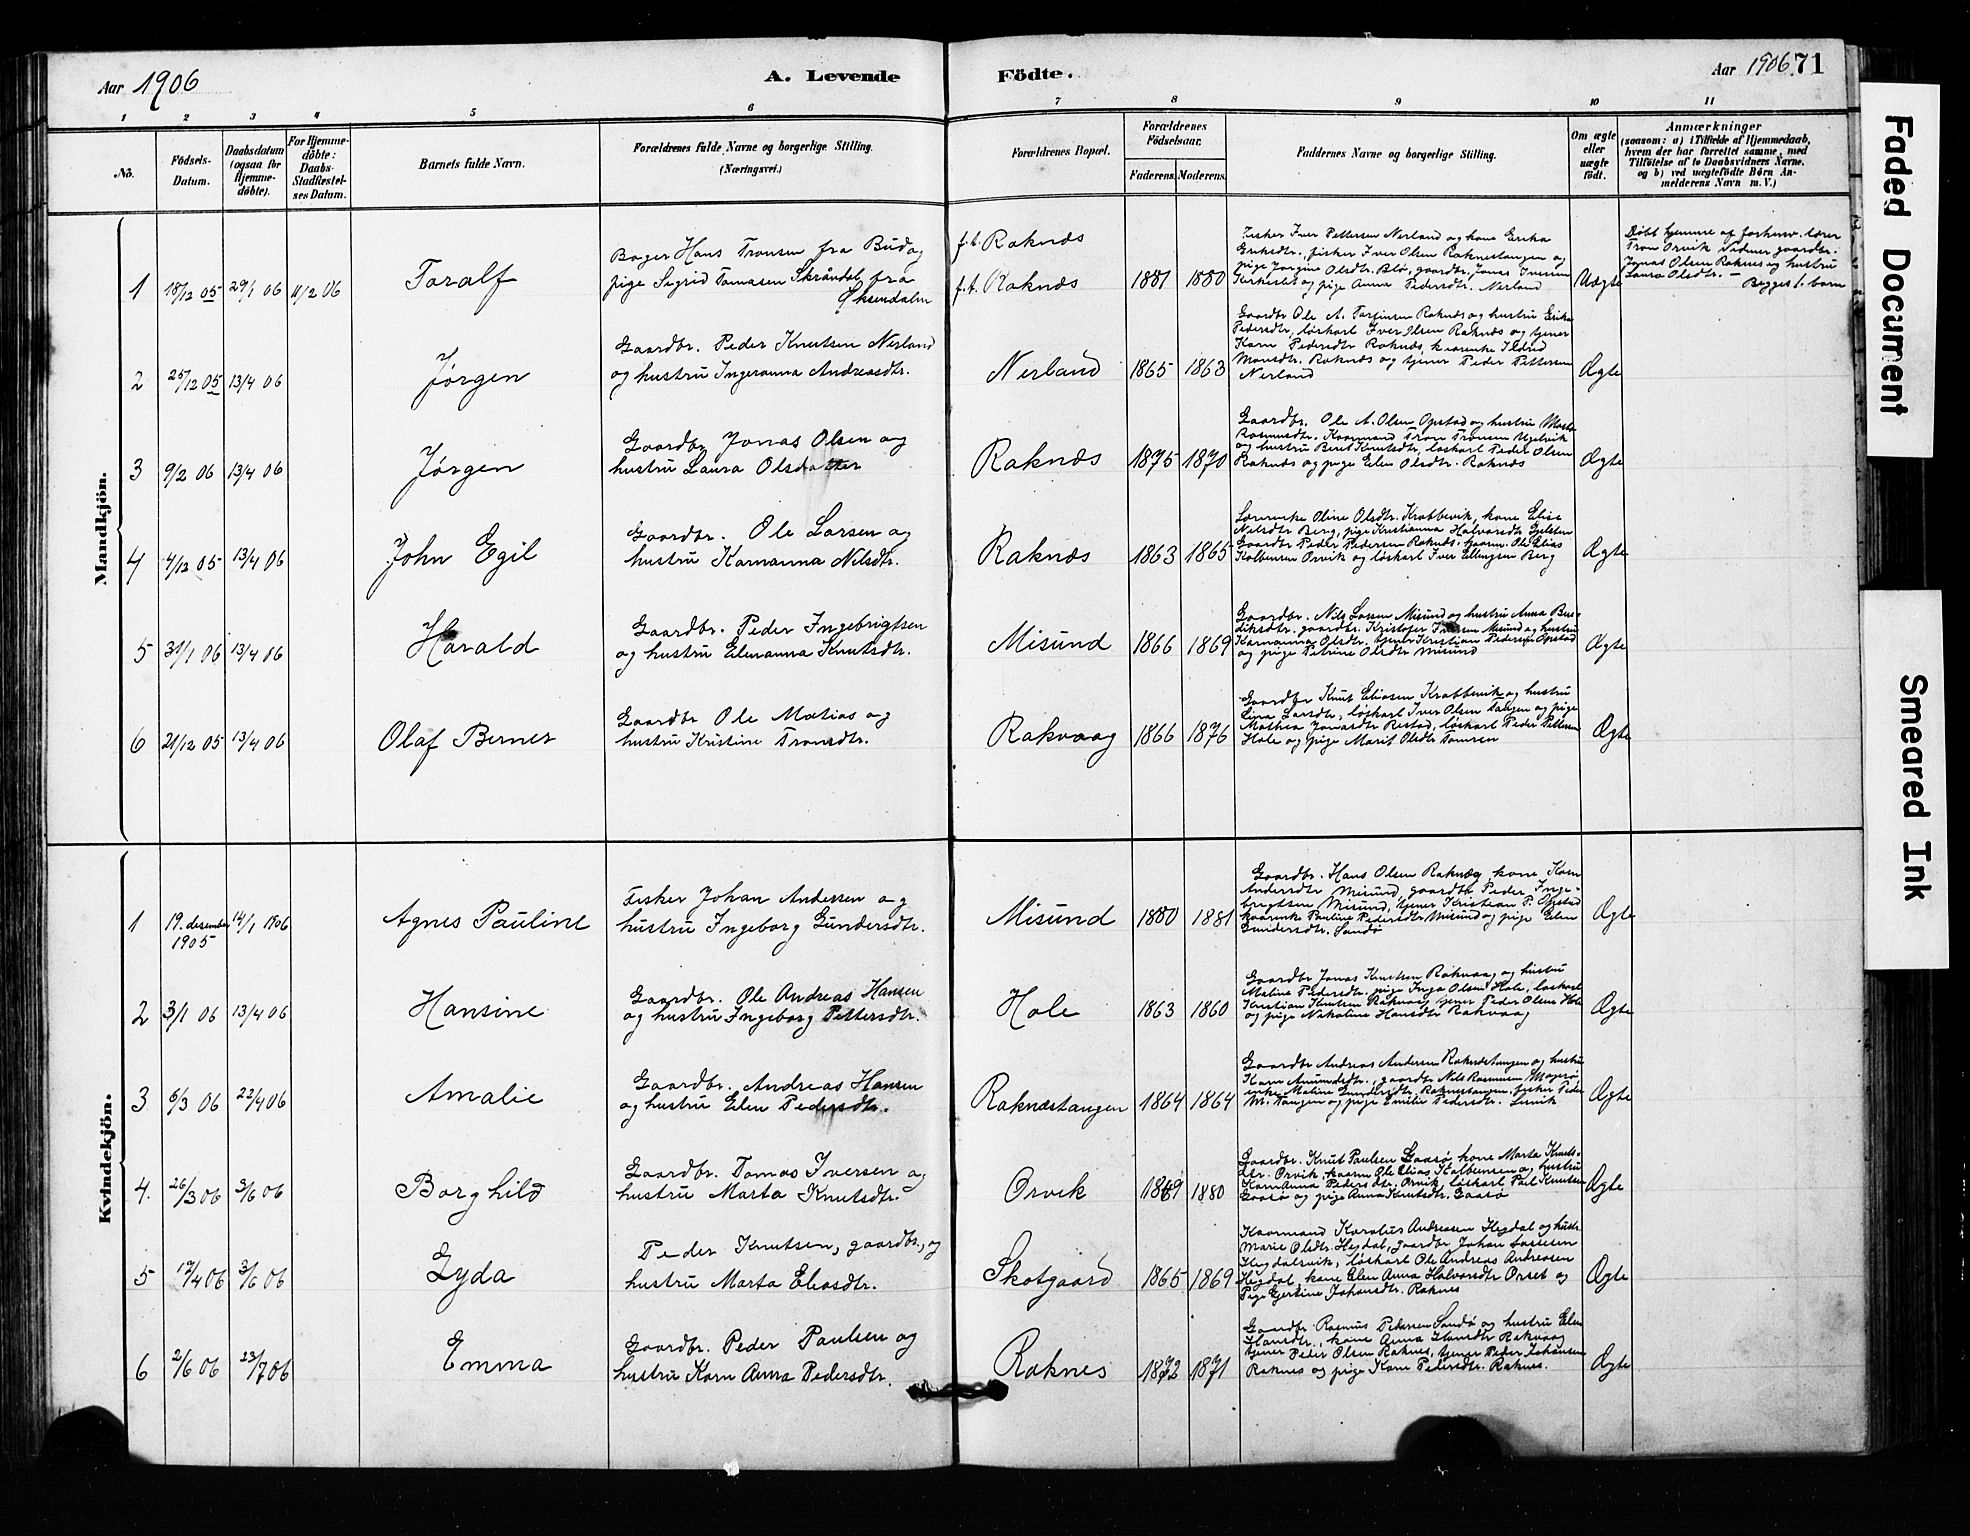 Aar 1906
A. Levende
Födte.
Aar 1906. 71
1 2 3 4 5 6 7 8 9 10 11
No.
Födsels-
Datum.
Daabsdatum
(ogsaa for
Hjemme-
döbte).
For Hjemme-
döbte:
Daabs-
Stadfestel-
ses Datum.
Barnets fulde Navn.
Forældrenes fulde Navne og borgerlige Stilling.
(Næringsvei.)
Forældrenes Bopæl.
Forældrenes
Födselsaar.
Faderens. Moderens.
Faddernes Navne og borgerlige Stilling.
Om ægte
eller
uægte
födt.
Anmærkninger
(saasom: a) i Tilfælde af Hjemmedaab,
hvem der har forrettet samme, med
Tilföielse af to Daabsvidners Navne,
og b) ved uægtefödte Börn An-
melderens Navn m. V.)
Mandkjön.
1 18/12 05 29/1 06 11/2 06 Toralf
Bager Hans Tronsen fra Bud og
pige Sigrid Tomasen Skråndal fra
Øksendalen
f.t. Raknæs
f.t. Raknæs 1881 1880
Fisker Iver Pettersen Nerland og kone Erika
Eriksdtr, fisker Iver Olsen Raknestangen og
pige Jorgine Olsdtr. Blø, gaardbr. Jonas Iversen
og pige Anna Pedersdtr. Nerland
Uægte
Døbt hjemme af forhenv. lærer
Tron Orvik Vidner gaardbr.
Jonas Olsen Raknes og hustru
Laura Olsdtr. —
Begges 1. barn
2 25/12 05 13/4 06 Jørgen
Gaardbr. Peder Knutsen Nerland
og hustru Ingeranna Andreasdtr.
Nerland 1865 1863
Gaardbr Ole A. Torfinsen Raknæs og hustru Erika
Pedersdtr, løskarl Iver Olsen Raknæs og tjener
Karn Pedersdtr Raknæs, kaarenke Ildrid
Monsdtr. Raknæs og tjener Peder Pettersen
Nerland
Ægte
3 9/2 06 13/4 06 Jørgen
Gaardbr Jonas Olsen og
hustru Laura Olsdatter
Raknæs 1875 1870
Gaardbr. Ole A. Olsen Opstad og hustru Marta
Rasmusdtr. Kaarmand Tron Tronsen
og hustru Berit Knutsdtr, løskarl Peder Olsen
Raknæs og pige Elen Olsdtr. Raknæs
Ægte
4 4/12 05 13/4 06 John Egil
Gaardbr. Ole Larsen og
hustru Karnanna Nilsdtr.
Raknæs 1863 1865
Lærerenke Oline Olsdtr. Krabbevik, kone Elise
Nilsdtr Berg, pige Kristianna Halvorsdtr
Gaardbr Peder Pedersen Raknæs, kaarm. Ole Elias
Kolbensen Orvik og løskarl Iver Ellingsen Berg
Ægte
5 31/1 06 13/4 06 Harald
Gaardbr. Peder Ingebrigtsen
og hustru Elenanna Knutsdtr.
Misund 1866 1869
Gaardbr. Nils Larsen Misund og hustru Anna Ben-
diksdtr. gaardbr. Kristofer Iversen Misund og hustru
Karnanna Olsdtr. tjener Kristian Pedersen Opstad
og pige Petrine Olsdtr Misund
Ægte
6 21/12 05 13/4 06 Olaf Berner
Gaardbr Ole Matias og
hustru Kristine Tronsdtr.
Rakvaag 1866 1876
Gaardbr Knut Eliasen Krabbevik og hustru
Lina Larsdtr, løskarl Iver Olsen Tangen og pige
Mathea Jonasdtr Restad, løskarl Peder Pettersen
Hole og pige Marit Olsdtr Tomren
Ægte
Kvindekjön.
1 19. desember 1905 14/1 1906 Agnes Pauline
Fisker Johan Andersen og
hustru Ingeborg Gundersdtr.
Misund 1880 1881
Gaardbr. Hans Olsen Raknæs, kone Karn
Andersdtr Misund, gaardbr Peder Inge-
brigtsen Misund, tjener Kristian P. Opstad
kaarenke Pauline Pedersdtr Misund og pige Elen
Gundersdtr. Sandø
Ægte
2 3/1 06 13/4 06 Hansine
Gaardbr. Ole Andreas Hansen
og hustru Ingeborg Pettersdtr.
Hole 1863 1860
Gaardbr Jonas Knutsen Rakvaag og hustru
Maline Pedersdtr. pige Inga Olsen Hole, løskarl
Kristian Knutsen Rakvaag tjener Peder Olsen Hole
og pige Nikoline Hansdtr Rakvaag
Ægte
3 6/3 06 22/4 06 Amalie
Gaardbr. Andreas Hansen
og hustru Elen Pedersdtr.
Raknæstangen 1864 1864
Gaardbr Andreas Andersen Raknæstangen og hustru
Karn Amundsdtr., gaardbr Nils Rasmussen Magerø
enke Maline Gundersdtr Raknæstangen, fisker Peder
M. Tangen og pige Emilie Pedersdtr.
Ægte
4. 26/3 06 3/6 06 Borghild
Gaardbr. Tomas Iversen og
hustru Marta Knutsdtr.
Orvik 1849 1880
Gaardbr. Knut Paulsen Gaasø kone Marta Knuts-
dtr. Orvik, kaarm Ole Elias Kolbensen og hustru
Karnanna Pedersdtr. Orvik, løskarl Paul Knutsen
Gaasø og pige Anna Knutsdtr. Gaasø
Ægte
5 17/4 06 3/6 06 Lyda
Peder Knutsen, gaardbr., og
hustru Marta Eliasdtr.
Skotgaard 1865 1869
Kaarmand Karolius Andreasen Hegdal og hustr.
Marie Olsdtr. Hegdal, gaardbr Johan Lassesen
Hegdalsvik, løskarl Ole Andreas Andreasen
Hegdal, kone Elen Anna Halvorsdtr Orset og
Pige Gjertine Johansdtr. Raknes
Ægte
6 2/6 06 23/7 06 Emma
Gaardbr. Peder Paulsen og
hustru Karn Anna Pedersdtr.
Raknes 1872 1871
Gaardbr Rasmus Petersen Sandø og hustru Elen
Hansdtr., kone Anna Hansdtr Rakvaag
tjener Peder Olsen Raknes, tjener Peder Johansen
Raknes og pige Karn Pedersdtr. Raknes.
Ægte
Faded Document
Smeared Ink